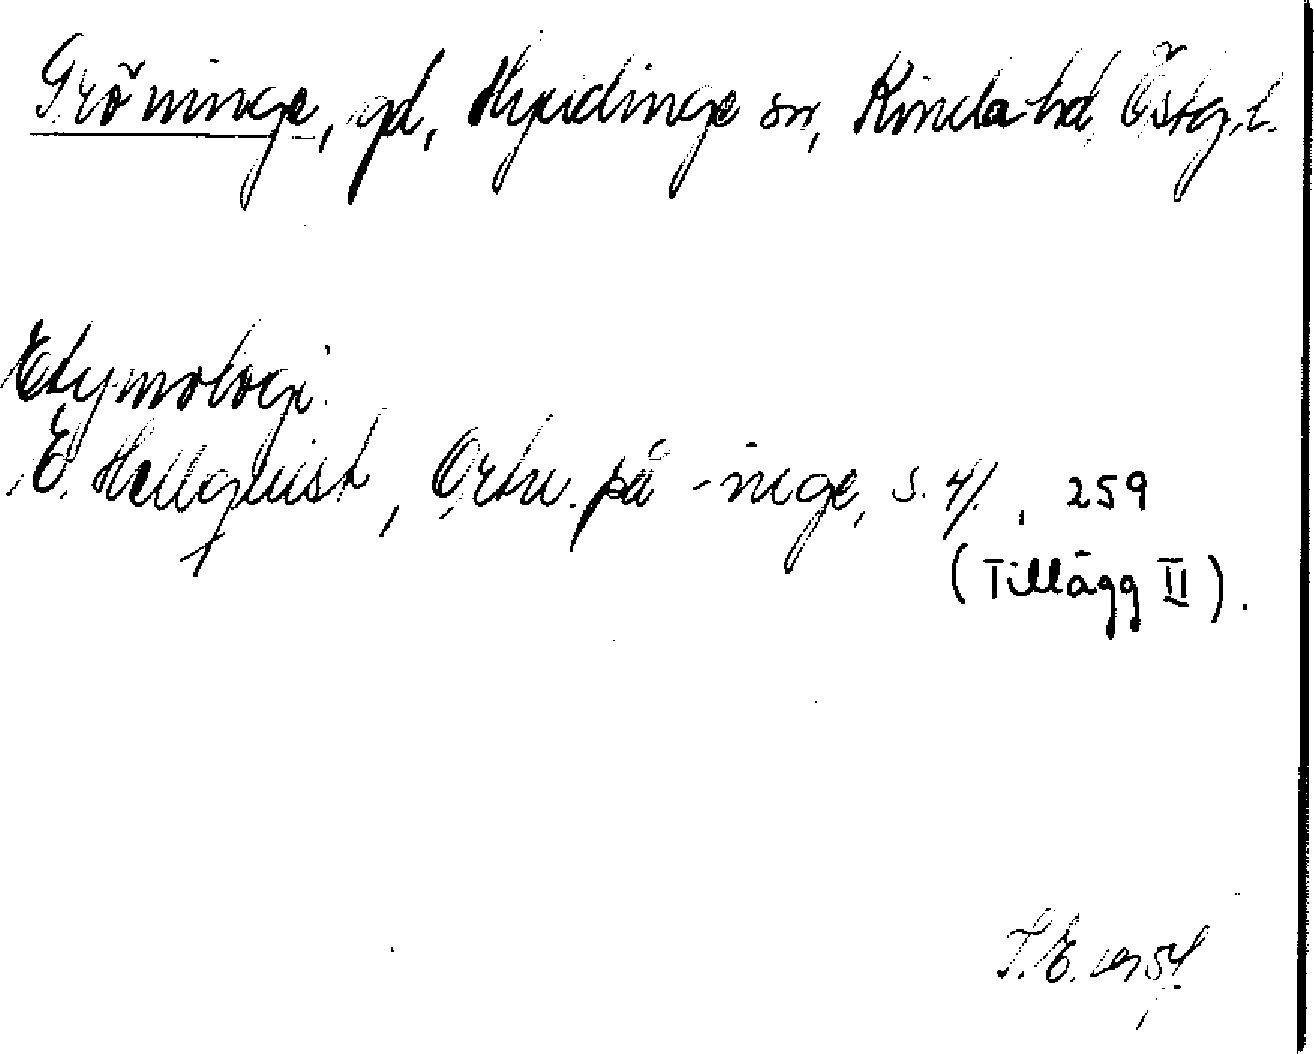 Gröninge, gd, Hycklinge sn, Kinda hd, Östg.l.
Etymologi.
E. Hellquist, Ortn. på -inge, s. 41, 259
(Tillägg II).
T.E. 1954